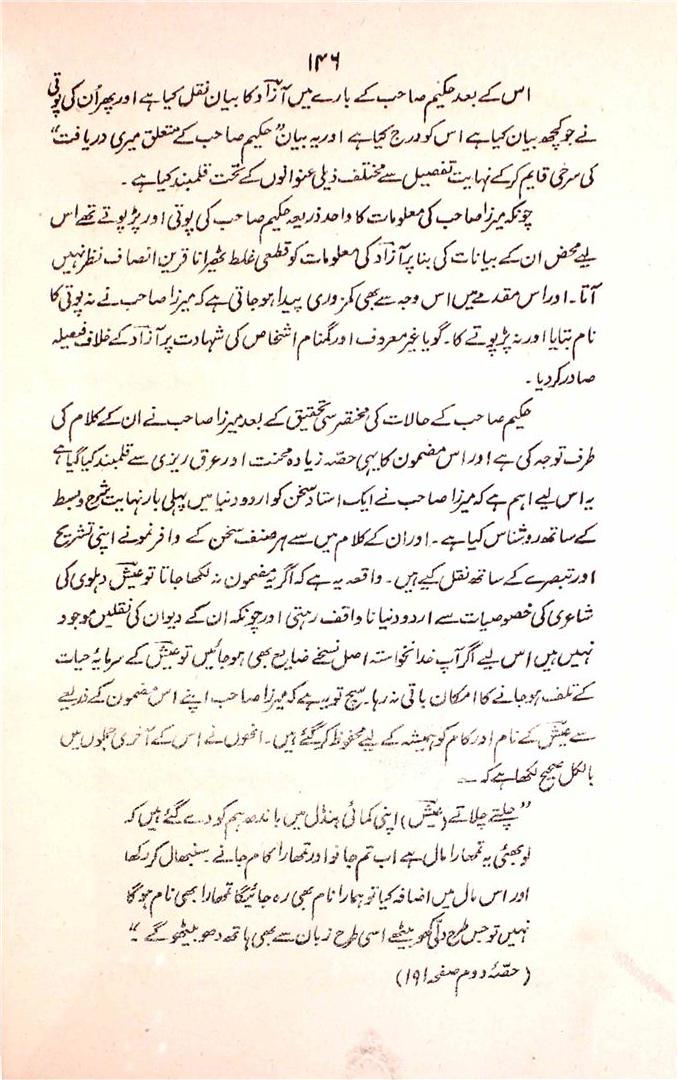 ۱۴۶
اس کے بعد حکیم صاحب کے بارے میں آزاد کا بیان نقل کیا ہے اور پھر اُن کی پوتی
نے جو کچھ بیان کیا ہے اس کو درج کیا ہے اور یہ بیان "حکیم صاحب کے متعلق میری دریافت"
کی سرخی قایم کرکے نہایت تفصیل سے مختلف ذیلی عنوانوں کے تحت قلمبند کیا ہے۔
چونکہ میرزا صاحب کی معلومات کا واحد ذریعہ حکیم صاحب کی پوتی اور پڑپوتے تھے اس
لیے محض ان کے بیانات کی بنا پر آزاد کی معلومات کو قطعی غلط ٹھیرانا قرین انصاف نظر نہیں
آتا۔ اور اس مقدمے میں اس وجہ سے بھی کمزوری پیدا ہو جاتی ہے کہ میرزا صاحب نے نہ پوتی کا
نام بتایا اور نہ پڑپوتے کا۔ گویا غیر معروف اور گمنام اشخاص کی شہادت پر آزاد کے خلاف فیصلہ
صادر کر دیا۔
حکیم صاحب کے حالات کی مختصر سی تحقیق کے بعد میرزا صاحب نے ان کے کلام کی
طرف توجہ کی ہے اور اس مضمون کا یہی حصّہ زیادہ محنت اور عرق ریزی سے قلمبند کیا گیا ہے
یہ اس لیے اہم ہے کہ میرزا صاحب نے ایک استاد سخن کو اردو دنیا میں پہلی بار نہایت شرح و بسط
کے ساتھ روشناس کیا ہے۔ اور ان کے کلام میں سے ہر صنف سخن کے وافر نمونے اپنی تشریح
اور تبصرے کے ساتھ نقل کیے ہیں۔ واقعہ یہ ہے کہ اگر یہ مضمون نہ لکھا جاتا تو عیش دہلوی کی
شاعری کی خصوصیات سے اردو دنیا ناواقف رہتی اور چونکہ ان کے دیوان کی نقلیں موجود
نہیں ہیں اس لیے اگر آپ خدانخواستہ اصل نسخے ضایع بھی ہو جائیں تو عیش کے سرمایۂ حیات
کے تلف ہو جانے کا امکان باقی نہ رہا۔ سچ تو یہ ہے کہ میرزا صاحب اپنے اس مضمون کے ذریعے
سے عیش کے نام اور کام کو ہمیشہ کے لیے محفوظ کر گئے ہیں۔ انھوں نے اس کے آخری جملوں میں
بالکل صحیح لکھا ہے کہ ۔۔
"چلتے چلاتے (عیش) اپنی کمائی بنڈل میں باندھ ہم کو دے گئے ہیں کہ
لو بھئی یہ تمھارا مال ہے اب تم جانو اور تمھارا کام جانے۔ سنبھال کر رکھا
اور اس مال میں اضافہ کیا تو ہمارا نام بھی رہ جائیگا تمھارا بھی نام ہوگا
نہیں تو جس طرح دلّی کھو بیٹھے اسی طرح زبان سے بھی ہاتھ دھو بیٹھو گے۔"
(حصّۂ دوم صفحہ ۱۹۱)